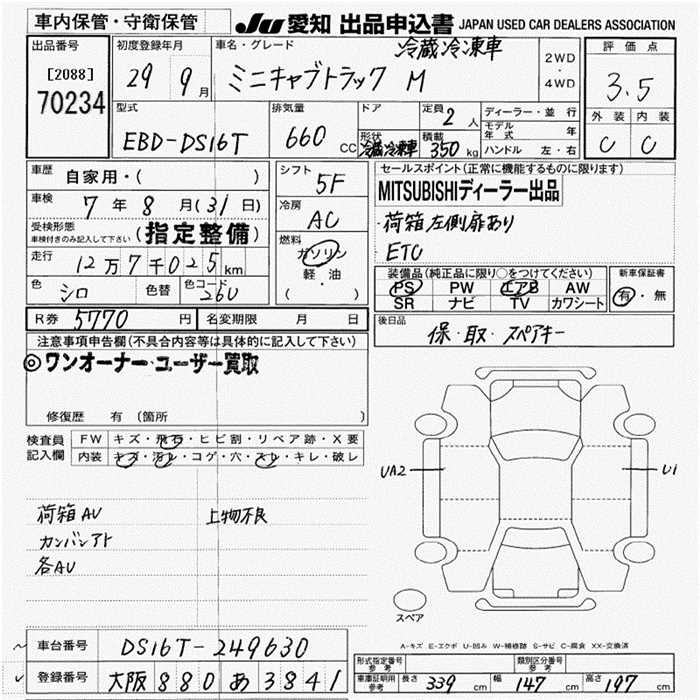 車内保管・守衛保管
JU 愛知 出品申込書 JAPAN USED CAR DEALERS ASSOCIATION
出品番号
[2088]
70234
初度登録年月
29 9月
車名・グレード
冷蔵冷凍車
ミニキャブトラック M
2WD
・
4WD
評価点
3.5
外装 内装
C C
型式
EBD-DS16T
排気量
660 CC
ドア
形状
冷蔵冷凍車
定員 2 人
積載 350 kg
ディーラー・並行
モデル年式 年
ハンドル 左・右
車歴
自家用・( )
車検
7年8月(31日)
受検形態
車検付きのみ記入して下さい
(指定整備)
走行
12万7千025km
色 シロ 色替 色コード 26U
シフト
5F
冷房
AC
燃料
ガソリン
軽・油
( )
セールスポイント(正常に機能するものに限ります)
MITSUBISHIディーラー出品
・荷箱左側扉あり
ETC
装備品(純正品に限り○をつけてください)
PS PW エアB AW
SR ナビ TV カワシート
新車保証書
有・無
R券 5770 円 名変期限 月 日
後日品
保・取・スペアキー
注意事項申告欄(不具合内容等は具体的に記入して下さい)
◎ワンオーナー・ユーザー買取
修復歴 有 (箇所 )
検査員
記入欄
FW キズ・飛石・ヒビ割・リペア跡・X要
内装 キズ・汚レ・コゲ・穴・スレ・キレ・破レ
荷箱AU
カンバンアト
各AU
上物不良
UA2
U1
スペア
A-キズ E-エクボ U-凹み W-補修跡 S-サビ C-腐食 XX-交換済
車台番号 DS16T-249630
登録番号 大阪 880 あ 3841
形式指定番号
参考
類別区分番号
参考
車庫証明用
参考
長さ 339 cm 幅 147 cm 高さ 197 cm